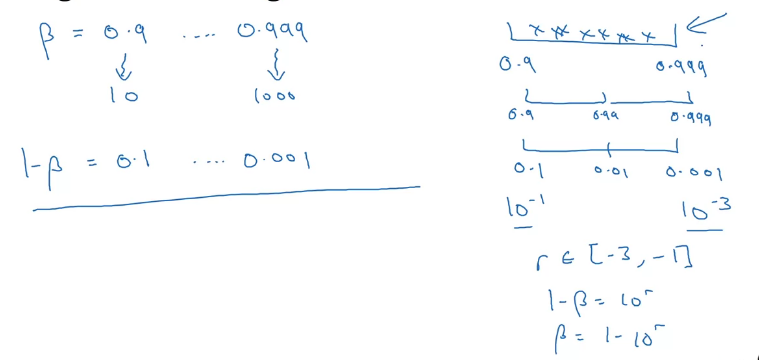 β = 0.9 .... 0.999
10 1000
1-β = 0.1 .... 0.001
x x x x x x x
0.9 0.999
0.9 0.99 0.999
0.1 0.01 0.001
10⁻¹ 10⁻³
r ∈ [-3, -1]
1-β = 10ʳ
β = 1-10ʳ